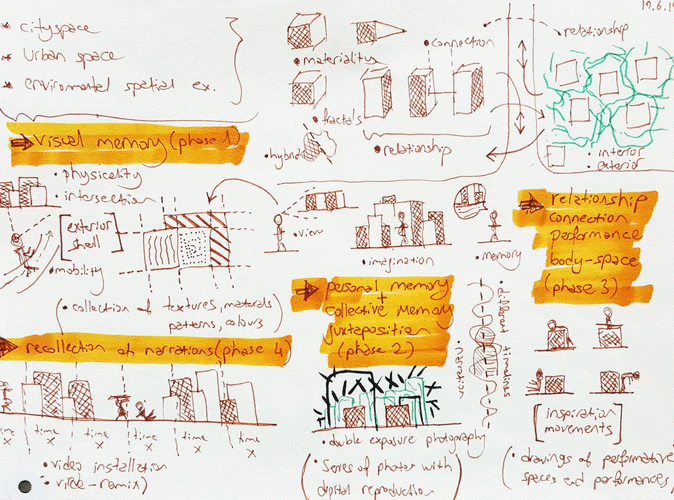 17.6.1
* cityspace
* Urban space
* enviromental spatial ex.
• materiality
• connection
relationship
• fractals
• hybrid
• relationship
• interior
• exterior
visual memory (phase 1)
• physicality
• intersection
[exterior
shell]
• mobility
(• collection of textures, materials
patterns, colours)
• view
• imagination
• memory
relationship
connection
performance
body-space
(phase 3)
personal memory
+
collective memory
juxtaposition
(phase 2)
• different timations
recollection of narrations (phase 4)
time
x
time
x
time
x
time
x
time
x
• video installation
• video-remix)
• double exposure photography
(• Series of photos with
digital reproduction)
[inspiration
movements]
(• drawings of performative
spaces and performances)